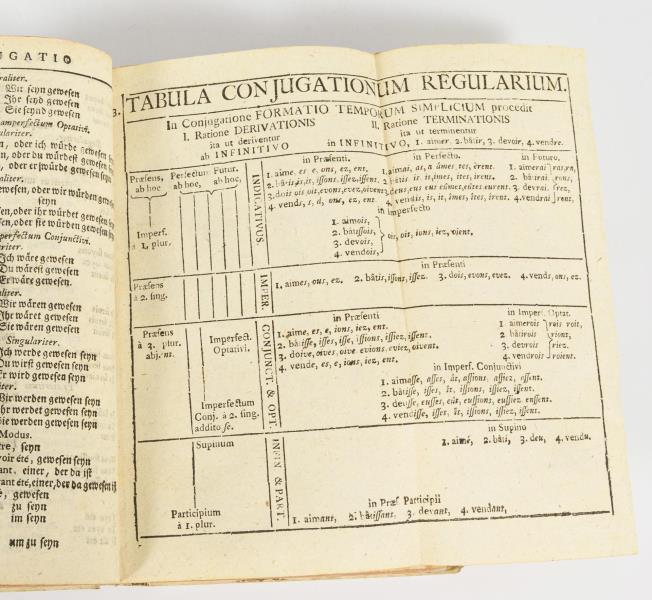 UGATIO
raliter.
Wir seyn gewesen
Ihr seyd gewesen
Sie seynd gewesen
amperfectum Optativi.
ulariter.
n, oder ich würde gewesen
n, oder du würdest gewesen
n, oder er würde gewesen seyn
aliter.
ewesen, oder wir würden
seyn
sen, oder ihr würdet gewesen
sen, oder sie würden gewesen
perfectum Conjunctivi.
riter.
Ich wäre gewesen
Du wärest gewesen
Er wäre gewesen.
aliter.
Wir wären gewesen
Ihr wäret gewesen
Sie wären gewesen
Singulariter
Ich werde gewesen seyn
Du wirst gewesen seyn
Er wird gewesen seyn
iter.
Wir werden gewesen seyn
Ihr werdet gewesen seyn
Sie werden gewesen seyn
Modus.
re, seyn
voir été, gewesen seyn
ant. einer, der da ist
rant été, einer, der da gewesen ist
é, gewesen
zu seyn
im seyn
um zu seyn
3.
TABULA CONJUGATIONUM REGULARIUM.
In Conjugatione FORMATIO TEMPORUM SIMPLICIUM procedit
I. Ratione DERIVATIONIS II. Ratione TERMINATIONIS
ita ut deriventur ita ut terminentur
ab INFINITIVO in INFINITIVO, 1. aimer, 2. bâtir, 3. devoir, 4. vendre.
Præsens, ab hoc
Perfectum ab hoc,
Futur. ab hoc,
Imperf. à 1. plur.
INDICATIVUS.
in Præsenti.
1. aime, es e, ons, ez, ent.
2. bâtis, is, it, issons, issez, issent.
3. dois ois, oit, evons, evez, oivent
4. vends, s, d, ons, ez, ent.
in Perfecto.
1. aimai, as, a âmes, tes, èrent.
2. bâtis is it, îmes, ites, irent.
3. deus, eus eut eûmes, eûtes eurent.
4. vendis, is, it, îmes, ites, irent.
in Futuro.
1. aimerai ras, ra,
2. bâtirai rons,
3. devrai rez,
4. vendrai ront,
in Imperfecto
1. aimois,
2. bâtissois,
3. devois,
4. vendois,
ois, oit, ions, iez, oient,
Præsens à 2. sing.
IMPER.
in Præsenti
1. aimes, ons, ez. 2. bâtis, issons, issez. 3. dois, evons, evez. 4. vends, ons, ez.
Præsens à 3. plur. abjic. ns.
Imperfect. Optativi.
Imperfectum Conj. à 2. sing. addito se.
CONJUNCT. & OPT.
in Præsenti
1. aime, es, e, ions, iez, ent.
2. bâtisse, isses, isse, issions, issiez, issent.
3. doive, oives, oive evions, eviez, oivent.
4. vende, es, e, ions, iez, ent.
in Imperf. Optat.
1 aimerois rois roit,
2 bâtirois rions,
3 devrois riez.
4 vendrois roient.
in Imperf. Conjunctivi
1. aimasse, asses, ât, assions, assiez, assent.
2. bâtisse, isses, ît, issions, issiez, issent.
3. deusse, eusses, eût, eussions, eussiez, eussent.
4. vendisse, isses, ît, issions, issiez, issent.
Supinum
Participium à 1. plur.
INFIN & PART.
in Supino
1. aimé, 2. bâti, 3. deu, 4. vendu.
in Præs. Participii
1. aimant, 2. bâtissant, 3. devant, 4. vendant,